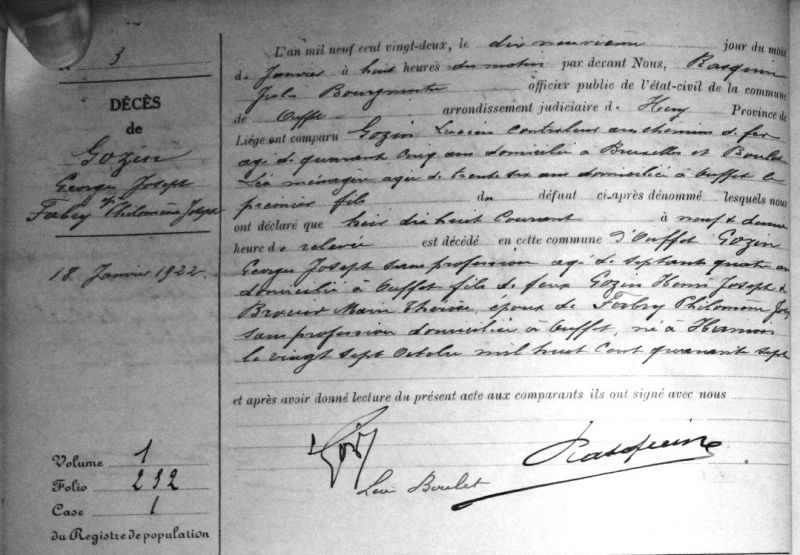 3
DÉCÈS
de
Gozin
Georges Joseph
Fabry Philomène Joseph
18 Janvier 1922
Volume 1
Folio 232
Case 1
du Registre de population
L'an mil neuf cent vingt-deux, le dix neuvième jour du mois
de Janvier à huit heures du matin par devant Nous, Rasquin
Jules Bourgmestre officier public de l'état-civil de la commune
de Ouffet arrondissement judiciaire de Huy Province de
Liége ont comparu Gozin Lucien Controleur au chemin de fer
agé de quarante cinq ans domicilié à Bruxelles et Boulet
Léa ménagère agée de trente six ans domiciliée à Ouffet le
premier fils du défunt ci-après dénommé lesquels nous
ont déclaré que hier dix huit Courant à neuf & demie
heure de relevée est décédé en cette commune d'Ouffet Gozin
Georges Joseph sans profession agé de septante quatre ans
domicilié à Ouffet fils de feux Gozin Henri Joseph &
Marie Thérèse, époux de Fabry Philomène Joseph
sans profession domiciliée à Ouffet, né à Hamoir
le vingt sept Octobre mil huit Cent quarante sept
et après avoir donné lecture du présent acte aux comparants ils ont signé avec nous
Rasquin
Léa Boulet